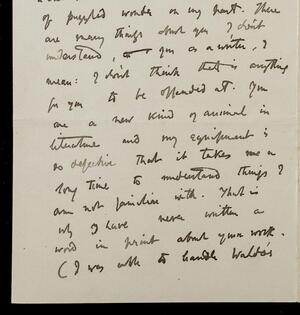 of puzzled wonder on my part. There
are many things about you I don't
understand, to you as a writer, I
mean: I don't think that is anything
for you to be offended at. You
are a new kind of animal in
literature and my equipment is
so defective that it takes me a
long time to understand things I
am not familiar with. That is
why I have never written a
word in print about your work.
(I was able to handle Waldo's